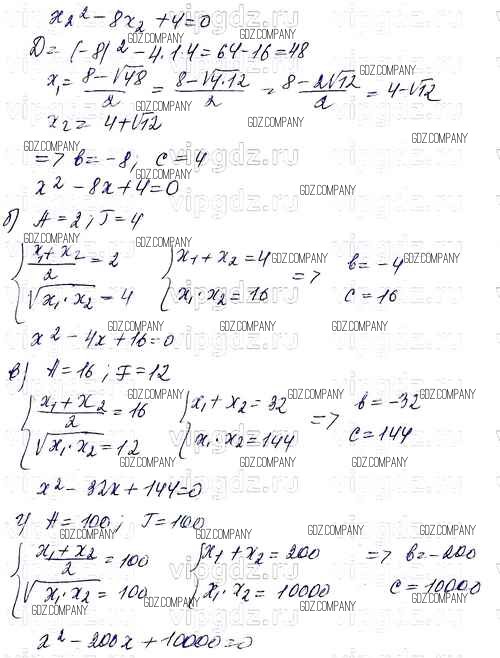 x₂² - 8x₂ + 4 = 0
D = (-8)² - 4·1·4 = 64 - 16 = 48
x₁ = (8 - √48)/2 = (8 - √(4·12))/2 = (8 - 2√12)/2 = 4 - √12
x₂ = 4 + √12
=> b = -8, c = 4
x² - 8x + 4 = 0
б) A = 2; Г = 4
{ (x₁ + x₂)/2 = 2 { x₁ + x₂ = 4 => b = -4
{ √(x₁·x₂) = 4 { x₁·x₂ = 16 c = 16
x² - 4x + 16 = 0
в) A = 16; Г = 12
{ (x₁ + x₂)/2 = 16 { x₁ + x₂ = 32 => b = -32
{ √(x₁·x₂) = 12 { x₁·x₂ = 144 c = 144
x² - 32x + 144 = 0
г) A = 100; Г = 100
{ (x₁ + x₂)/2 = 100 { x₁ + x₂ = 200 => b = -200
{ √(x₁·x₂) = 100 { x₁·x₂ = 10000 c = 10000
x² - 200x + 10000 = 0
GDZ.COMPANY
vipgdz.ru